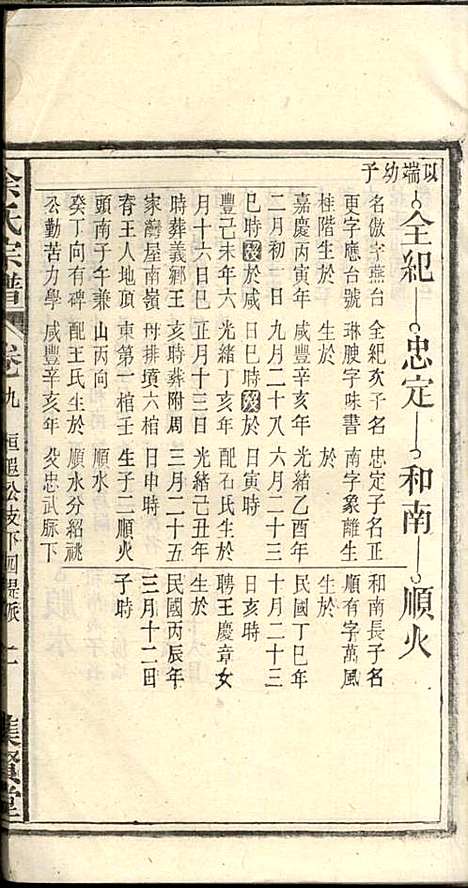 以端幼子
全紀
忠定
和南
順火
名儆字燕台
更字應台號
桂階生於
嘉慶丙寅年
二月初一日
巳時歿於咸
豐己未年六
月十六日巳
時葬義鄉王
家灣屋南嶺
脊王人地頂
頭南子午兼
癸丁向有碑
公勤苦力學
全紀次子名
琳腴字味書
生於
咸豐辛亥年
九月二十八
巳時歿於
光緒丁亥年
正月十三日
亥時葬附周
母排墳六棺
東第一棺壬
山丙向
配王氏生於
咸豐辛亥年
忠定子名正
南字象離生
於
光緒乙酉年
六月二十三
日寅時
配石氏生於
光緒己丑年
三月二十五
日申時
生子二順火
順水
順水分紹祧
忠武脈下
和南長子名
順有字萬風
生於
民國丁巳年
十月二十三
日亥時
聘王慶章女
生於
民國丙辰年
三月十二日
子時
氏宗譜
卷九
松支下四提派
二
集賢堂